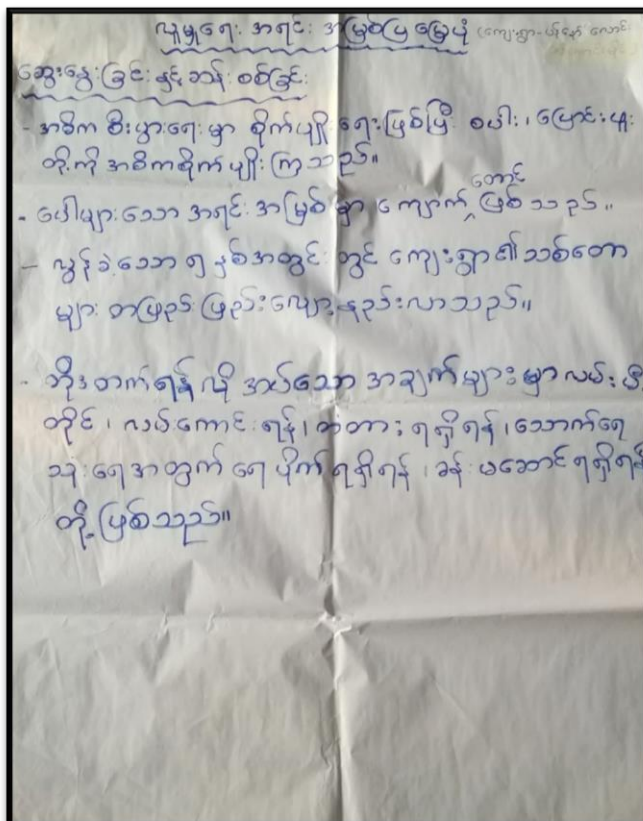 လူမှုရေး အရင်း အမြစ်ပြ မြေပုံ (ကျေးရွာ-
ဆွေးနွေးခြင်း နှင့် ဆန်းစစ်ခြင်း
- အဓိက စီးပွားရေးမှာ စိုက်ပျိုးရေးဖြစ်ပြီး စပါး၊ ပြောင်းဖူး
တို့ကို အဓိကစိုက်ပျိုးကြသည်။
- ပေါများသော အရင်းအမြစ်မှာ ကျောက်တောင်ဖြစ်သည်။
- လွန်ခဲ့သော ၅ နှစ်အတွင်းတွင် ကျေးရွာ၏သစ်တော
များ တဖြည်းဖြည်းလျော့နည်းလာသည်။
- ဘိုးတက်ရန် လိုအပ်သော အချက်များမှာ လမ်း
တိုင်၊ လယ်ကောင်းရန်၊ တံတားရရှိရန်၊ သောက်ရေ
သုံးရေအတွက် ရေပိုက်ရရှိရန်၊ ခန်းမဆောင်ရရှိရန်
တို့ဖြစ်သည်။